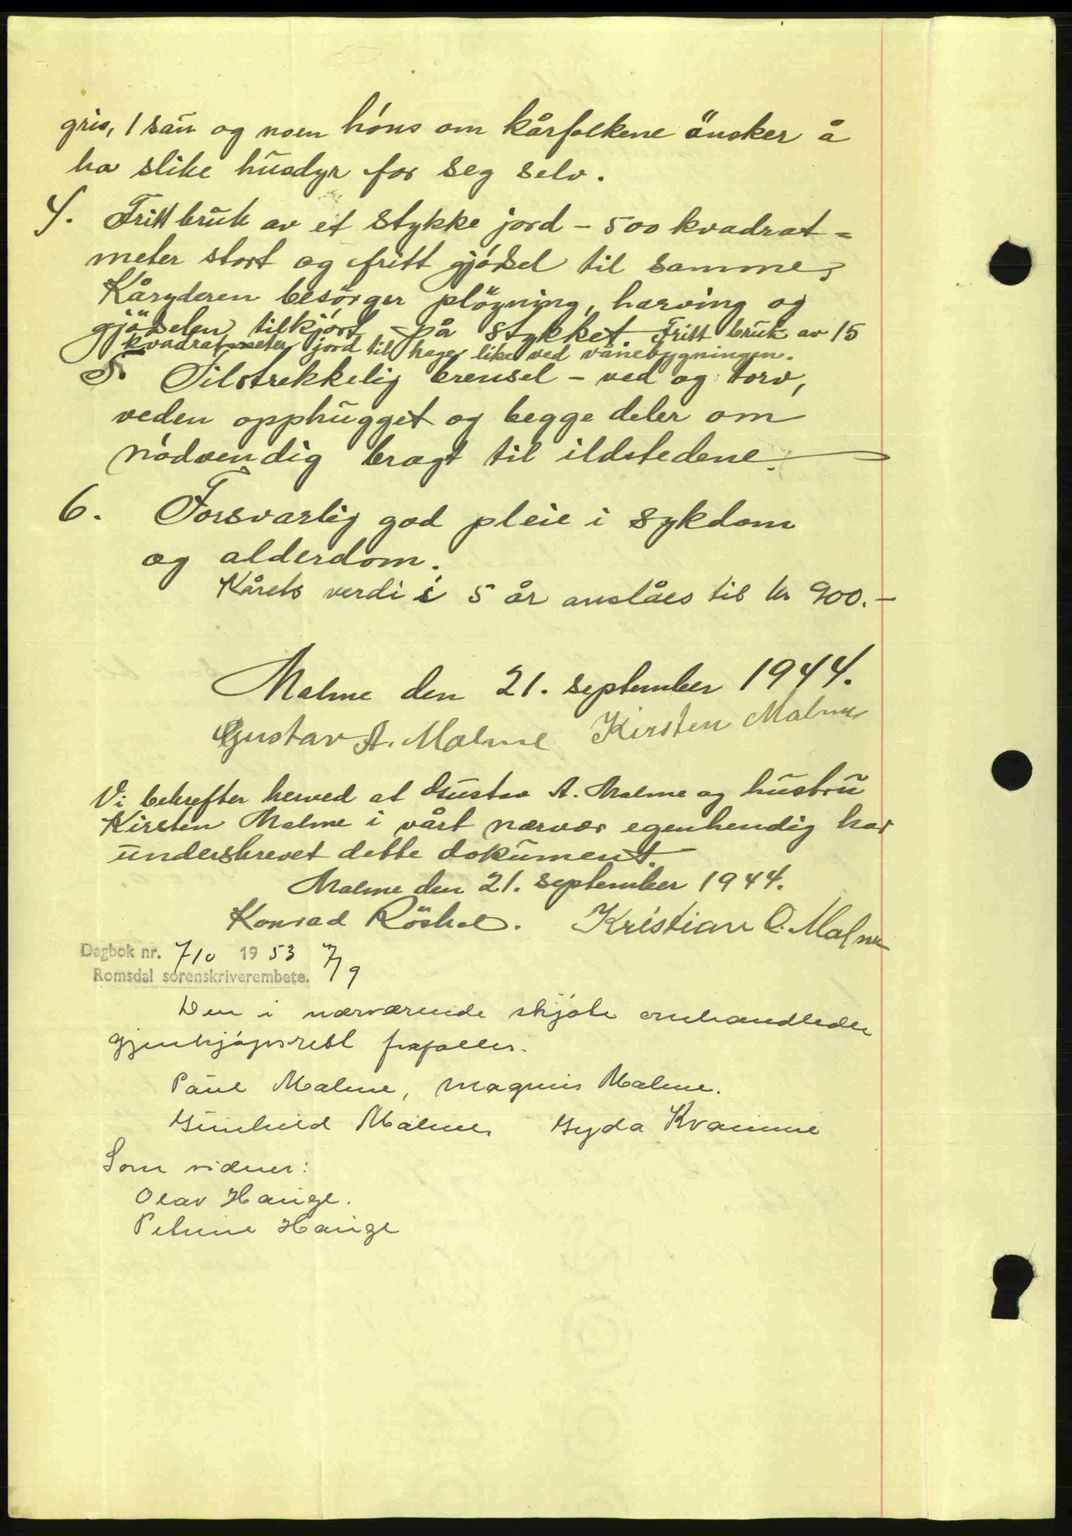 gris, 1 sau og noen høns om kårfolkene ønsker å
ha slike husdyr for seg selv.
4. Fritt bruk av et stykke jord - 500 kvadrat-
meter stort og fritt gjødsel til samme,
Kåryderen besørger pløyning, harving og
gjødselen tilkjørt på stykket. Fritt bruk av 15
kvadratmeter jord til hage like ved vånebygningen.
5. Tilstrekkelig brensel - ved og torv,
veden opphugget og begge deler om
nødvendig bragt til ildstedene.
6. Forsvarlig god pleie i sykdom
og alderdom.
Kårets verdi i 5 år anslåes til kr 900.-
Malme den 21. september 1944.
Gustav A. Malme Kirsten Malme
Vi bekrefter herved at Gustav A. Malme og hustru
Kirsten Malme i vårt nærvær egenhendig har
underskrevet dette dokument.
Malme den 21. september 1944.
Konrad Röshol. Kristian O. Malme
Dagbok nr. 710 1953 7/9
Romsdal sorenskriverembete.
Den i nærværende skjöte omhandlede
gjenkjöpsrett frafalles.
Paul Malme, Magnus Malme.
Gunhild Malme. Gyda Kvamme
Som vidner:
Olav Hauge.
Peline Hauge